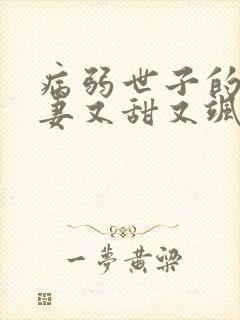 病弱世子的
妻又甜又飒
一梦黄梁